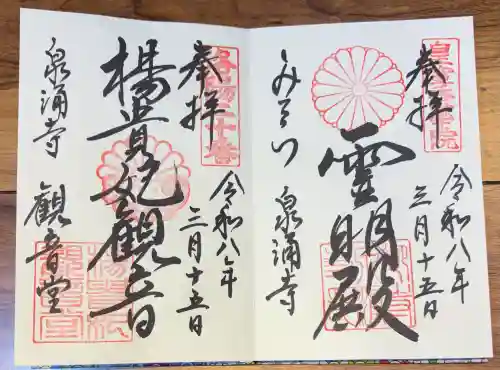 奉拝
令和八年
三月十五日
霊明殿
みてら
泉涌寺
奉拝
令和八年
三月十五日
楊貴妃観音
泉涌寺
観音堂